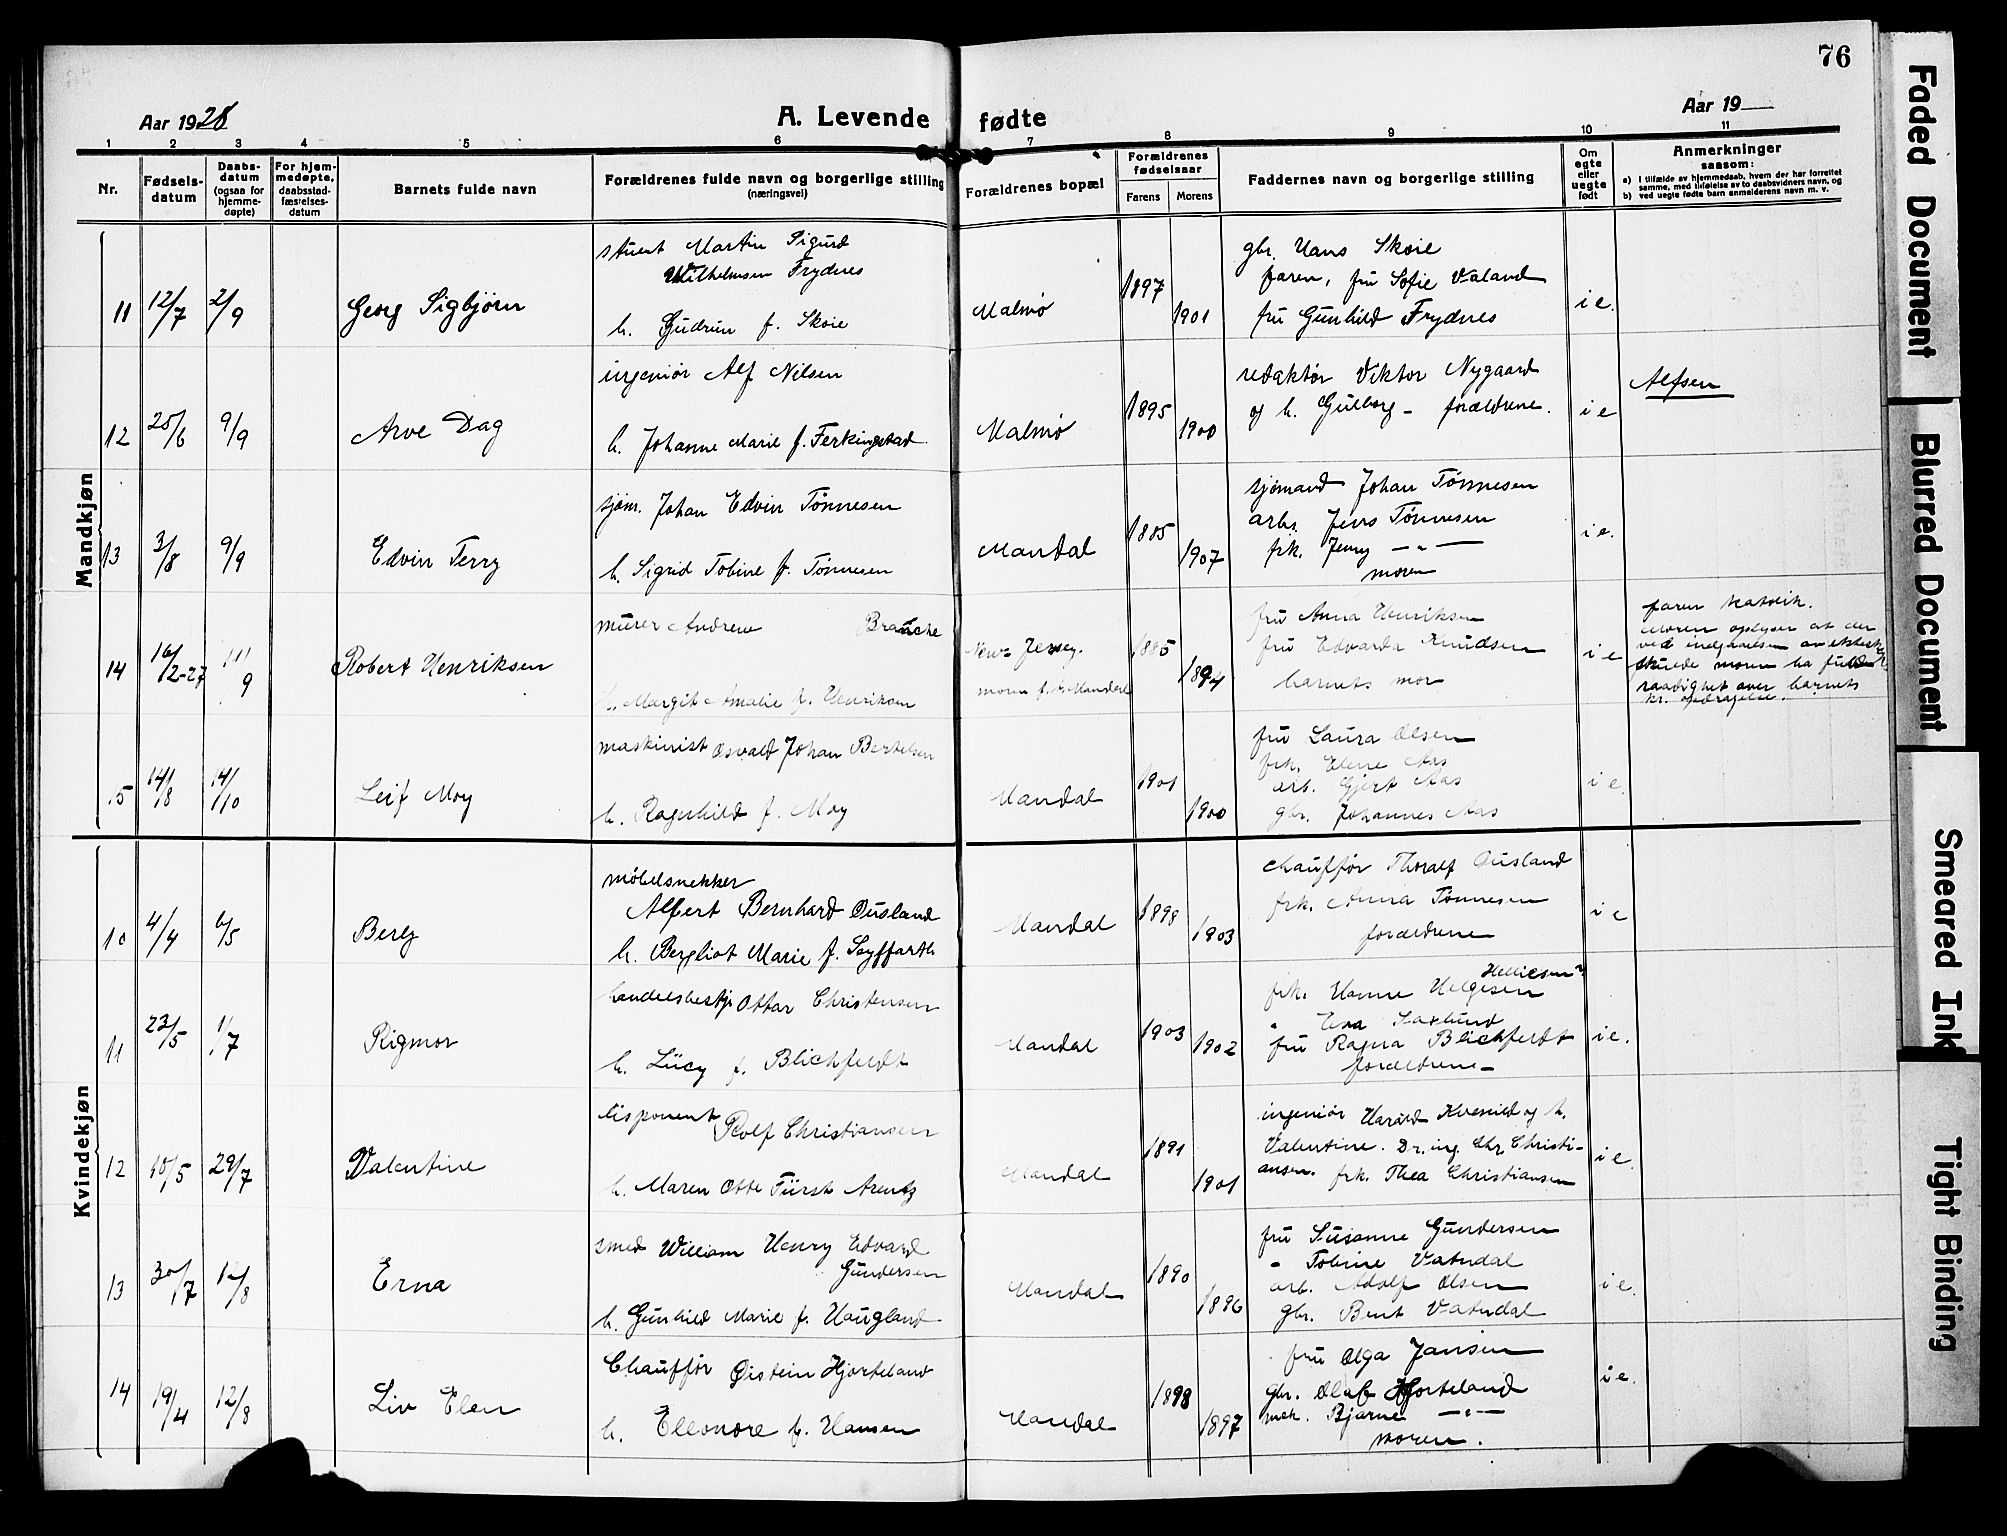 76
Aar 1928
A. Levende fødte
Aar 19
1 2 3 4 5 6 7 8 9 10 11
Nr.
Fødsels-
datum
Daabs-
datum
(ogsaa for
hjemme-
døpte)
For hjem-
medøpte,
daabsstad-
fæstelses-
datum
Barnets fulde navn
Forældrenes fulde navn og borgerlige stilling
(næringsvei)
Forældrenes bopæl
Forældrenes
fødselsaar
Farens Morens
Faddernes navn og borgerlige stilling
Om
egte
eller
uegte
født
Anmerkninger
saasom:
a) I tilfælde av hjemmedaab, hvem der har forrettet
samme, med tilføielse av to daabsvidners navn, og
b) ved uegte fødte barn anmelderens navn m. v.
Mandkjøn
11 12/7 2/9 Georg Sigbjørn
stuert Martin Sigurd
Wilhelmsen Frydnes
h. Gudrun f. Skoie
Malmø 1897 1901
gbr. Hans Skoie
faren, fru Sofie Valand
fru Gunhild Frydnes
i e.
12 25/6 9/9 Arve Dag
ingeniør Alf Nilsen
h. Johanne Marie f. Ferkingstad
Malmø 1895 1900
redaktør Viktor Nygaard
og h. Gulborg - forældrene.
i e
Alfsen
13 3/8 9/9 Edvin Terry
sjøm. Johan Edvin Tønnesen
h. Sigrid Tobine f. Tønnesen
Mandal 1885 1907
sjømand Johan Tønnesen
arb. Jens Tønnesen
frk. Jenny — " —
moren
i e.
14 16/2-27 11/9 Robert Henriksen
murer Andrew Branche
h. Margit Amalie f. Henriksen
New-Jersey.
moren f. t. Mandal
1885 1894
fru Anna Henriksen
fru Edvarda Knudsen
barnets mor
i e
faren katolik.
Moren oplyser at der
ved indgaaelsen av ekteskapet
skulde moren ha fulde
raadighet over barnets
kr. opdragelse.
15 14/8 14/10 Leif Moy
maskinist Osvald Johan Bertelsen
h. Ragnhild f. Moy
Mandal 1901 1900
fru Laura Olsen
frk. Elene Aas
arb. Gjert Aas
gbr. Johannes Aas
i e.
Kvindekjøn
10 4/4 6/5 Berly
møbelsnekker
Alfert Bernhard Ousland
h. Bergliot Marie f. Seyffarth
Mandal 1898 1903
chauffør Thoralf Ousland
frk. Anna Tønnesen
forældrene
i e
11 23/5 1/7 Rigmor
handelsbestyr Ottar Christensen
h. Lucy f. Blichfeldt
Mandal 1903 1902
Hellesen?
frk. Hanne Helgesen
" Eva Saxlund
fru Ragna Blichfeldt
forældrene -
i e.
12 10/5 29/7 Valentine
disponent Rolf Christiansen
h. Maren Otte Fürst Arentz
Mandal 1891 1901
ingeniør Harald Kvernild og h.
Valentine. Dr. ing. Chr Christi-
ansen. frk. Thea Christiansen
i e.
13 30/7 12/8 Erna
smed William Henry Edvard
Gundersen
h. Gunhild Marie f. Haugland
Mandal 1890 1896
fru Susanne Gundersen
- Tobine Vatndal
arb. Adolf Olsen
gbr. Bent Vatndal
i e.
14 19/4 12/8 Liv Elen
Chauffør Øistein Hjorteland
h. Elleonore f. Hansen
Mandal 1898 1897
fru Olga Jansen
gbr. Olaf Hjorteland
mek. Bjarne — " —
moren.
i e.
Faded Document
Blurred Document
Smeared Ink
Tight Binding